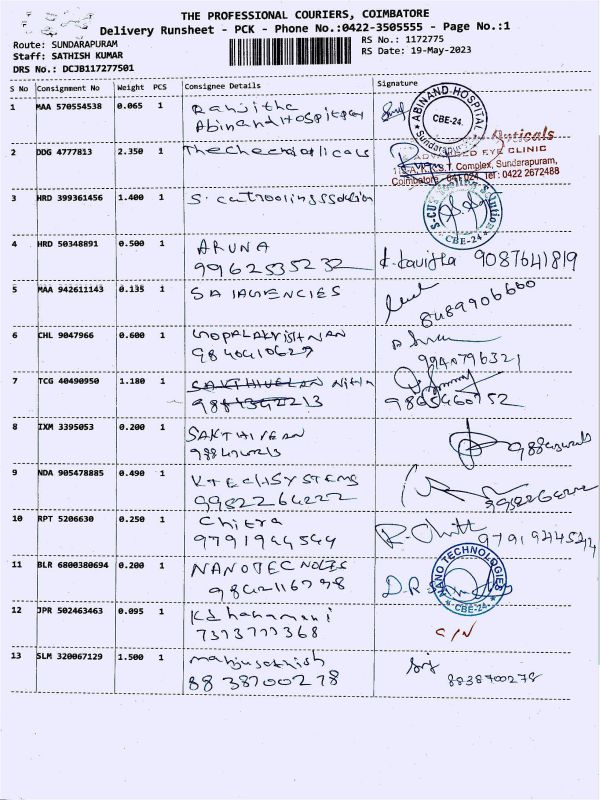 THE PROFESSIONAL COURIERS, COIMBATORE
Delivery Runsheet - PCK - Phone No.:0422-3505555 - Page No.:1
Route: SUNDARAPURAM
Staff: SATHISH KUMAR
DRS No.: DCJB117277501
RS No.: 1172775
RS Date: 19-May-2023
S No Consignment No Weight PCS Consignee Details Signature
1 MAA 570554538 0.065 1 Ranjitha
Abinand Hospital
ABINAND HOSPITAL
CBE-24.
Sundarapuram
2 DDG 4777813 2.350 1
Opticals
ADVANCED EYE CLINIC
Complex, Sundarapuram,
Coimbatore - 641 024. Tel : 0422 2672488
3 HRD 399361456 1.400 1
CBE-24
4 HRD 50348891 0.500 1 ARUNA
9962535232 K. Kavitha 9087641819
5 MAA 942611143 0.135 1 SAIAGENCIES
8489906600
6 CHL 9047966 0.600 1 GOPALAKRISHNAN
9840410627
9940796321
7 TCG 40490950 1.180 1 SAKTHIVELAN Nithin
8 IXM 3395053 0.200 1
9 NDA 905478885 0.490 1 KTECHSYSTEMS
9952264222
10 RPT 5206630 0.250 1 Chitra
9791944544 R. Chitt
11 BLR 6800380694 0.200 1 NANOTECNOLOGS
9842116798
NANO TECHNOLOGIES
CBE-24
12 JPR 502463463 0.095 1
7373777368 C/N
13 SLM 320067129 1.500 1 manjusathish
8838700278
8838700278